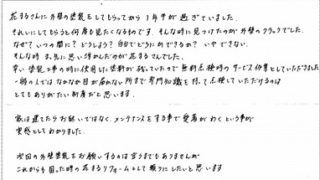 花まるさんに外壁の塗装をしてもらってから1年半が過ぎていました。
それにしてもうちと何度も見るものです。そんな時に見つけたのが外壁のクラックでした。
なぜ?いつの間に?どうしよう?自分でどうにかできるか?いやできない。
そんな時お気に思い浮かんだのが花まるさんでした。
幸い塗装工事の時に使用した塗料が残っていたので無料点検時のサービス作業としていただきました。
一般の人ではなかなか目が届かない所まで専門知識を持って点検していただけるのは
とてもありがたい制度だと思います。
家は建てたらお終いではなく、メンテナンスをする事で愛着がわくという事が
実感としてわかりました。
次回の外壁塗装をお願いするのは言うまでもありませんが
これからも困った時の花まるリフォームとして頼りにしたいと思います